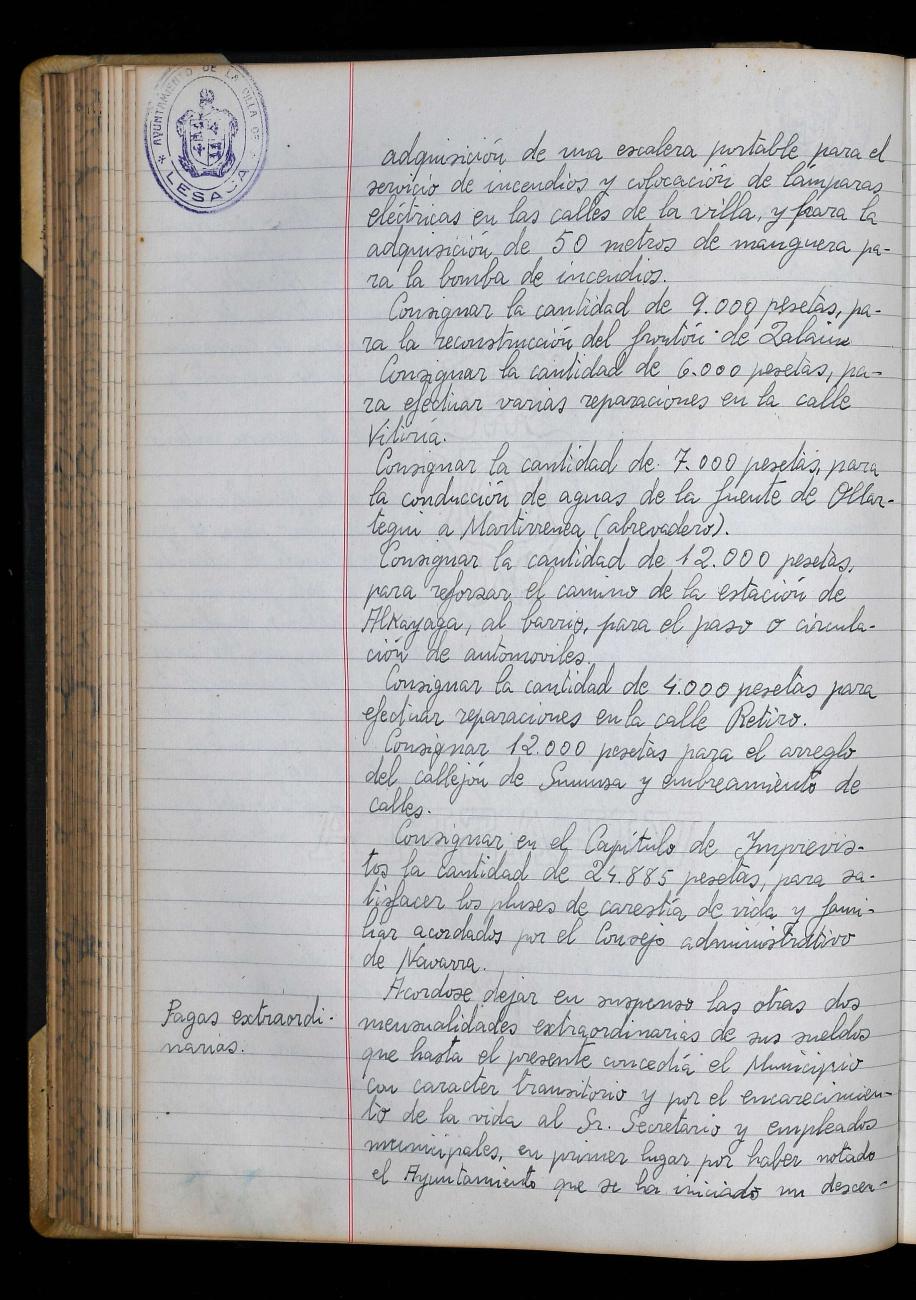 AYUNTAMIENTO DE LA VILLA DE
LESACA
adquisición de una escalera portable para el
servicio de incendios y colocación de lámparas
eléctricas en las calles de la villa, y para la
adquisición de 50 metros de manguera pa-
ra la bomba de incendios.
Consignar la cantidad de 9.000 pesetas, pa-
ra la reconstrucción del frontón de Zalain
Consignar la cantidad de 6.000 pesetas, pa-
ra efectuar varias reparaciones en la calle
Vitoria.
Consignar la cantidad de 7.000 pesetas, para
la conducción de aguas de la fuente de Ollar-
tegui a Martirrenea (abrevadero).
Consignar la cantidad de 12.000 pesetas,
para reforzar el camino de la estación de
Alkayaga, al barrio, para el paso o circula-
ción de automoviles.
Consignar la cantidad de 4.000 pesetas para
efectuar reparaciones en la calle Retiro.
Consignar 12.000 pesetas para el arreglo
del callejón de y embreamiento de
calles.
Consignar en el Capítulo de Imprevis-
tos la cantidad de 24.885 pesetas, para sa-
tisfacer los pluses de carestía de vida y fami-
liar acordados por el Consejo administrativo
de Navarra.
Pagas extraordi-
narias.
Acordose dejar en suspenso las otras dos
mensualidades extraordinarias de sus sueldos
que hasta el presente concedía el Municipio
con caracter transitorio y por el encarecimien-
to de la vida al Sr. Secretario y empleados
municipales, en primer lugar por haber notado
el Ayuntamiento que se ha iniciado un descen-